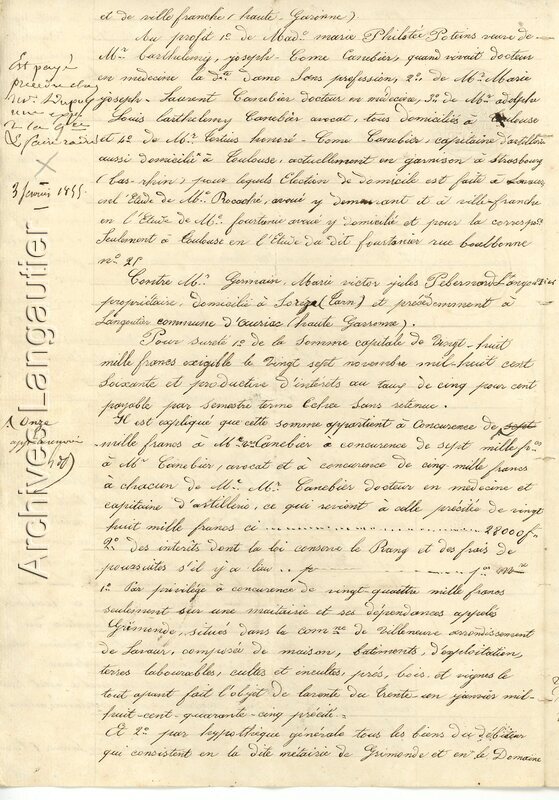 et de villefranche (haute Garonne)
Au profit 1° de Mad.e marie Philotée Poteins veuve de
Mr. barthelemy, joseph-Come Canebier, quand vivait docteur
en médecine la d.te dame Sans profession, 2° de Mr. Marie
joseph-Laurent Canebier docteur en médecine, 3° de Mr. adolphe
Louis barthelemy Canebier avocat, tous domiciliés à Toulouse
et 4° de Mr. Tertius honoré-Come Canebier, capitaine d'artillerie
aussi domicilié à Toulouse, actuellement en garnison à Strasbourg
(bas-rhin) pour lesquels Election de domicile est faite à
en l'Etude de Me. avoué y demeurant et à ville-franche
en l'Etude de Me. fourtanier avoué y domicilié et pour la corresp.ce
Seulement à Toulouse en l'Etude du dit fourtanier rue boulbonne
n° 25
Contre Mr. Germain, Marie victor jules Pebernard
propriétaire, domicilié à Sorèze (Tarn) et précédemment à
Langautier commune d'auriac (haute Garonne).
Pour sureté 1° de la Somme capitale de Vingt-huit
mille francs exigible le vingt sept novembre mil-huit cent
Soixante et productive d'intérêts au taux de cinq pour cent
payable par semestre terme Echu sans retenue.
Il est expliqué que cette somme appartient à Concurence de sept
mille francs à Me. Ve. Canebier à concurence de sept mille fr.s
à Mr. Canebier, avocat et à concurence de cinq mille francs
à chacun de Mr. Mr. Canebier docteur en médecine et
capitaine d'artillerie, ce qui revient à celle précitée de vingt
huit mille francs ci 28000 f
2° des intérêts dont la loi conserve le Rang et des frais de
poursuites s'il y a lieu
1° Par privilège à concurence de vingt-quatre mille francs
seulement sur une maitairie et ses dépendances appelée
Grimonde, situés dans la com.ne de villeneuve arrondissement
de Lavaur, composée de maison, batiments, d'exploitation,
terres labourables, cultes et incultes, prés, bois, et vignes le
tout ayant fait l'objet de la vente du trente-un janvier mil-
huit-cent-quarante-cinq précité.
Et 2° par hypothèque générale tous les biens du débiteur
qui consistent en la dite métairie de Grimonde et en le Domaine
Est payé
3 fevrier 1855.
Onze
Archives Langautier